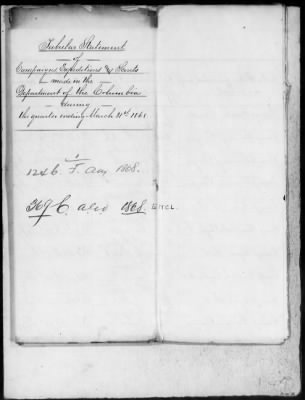 Tabular Statement
of
Campaigns Expeditions & Scouts
made in the
Department of the Columbia
during
the quarter ending March 31st 1868
1
1246. F. Aug 1868.
369 C. also 1868. ENCL.